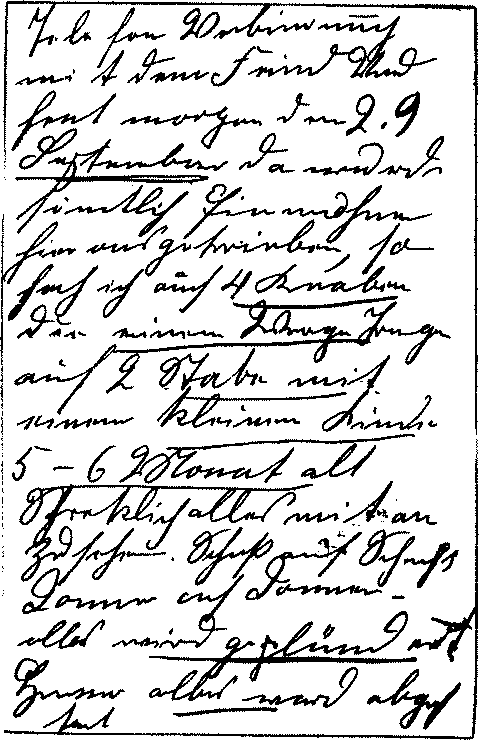 Tele fon Verbindung
mit dem Feind Und
heut morgen den 2.9
September da wurde
sämtlich Einwohner
hier ausgetrieben, so
sah ich auch 4 Knaben
die einem Wage Junge
auf 2 Stabe mit
einem kleinen Kinde
5 - 6 Monat alt
Schreklich alles mit an
zu sehen. Schuß auf Schuß
Donner auf Donner
alles wird geplündert
Hener alles ward abge